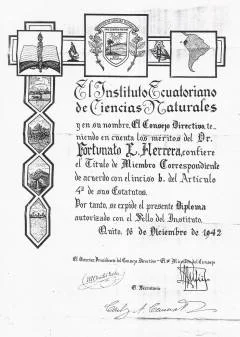 El Instituto Ecuatoriano
de Ciencias Naturales
y en su nombre, El Consejo Directivo, te-
niendo en cuenta los méritos del Dr.
Fortunato L. Herrera, confiere
el Título de Miembro Correspondiente
de acuerdo con el inciso b. del Artículo
4º de sus Estatutos.
Por tanto, se expide el presente Diploma
autorizado con el Sello del Instituto.
Quito, 16 de Diciembre de 1942
El Director Presidente del Consejo Directivo
del Consejo
El Secretario